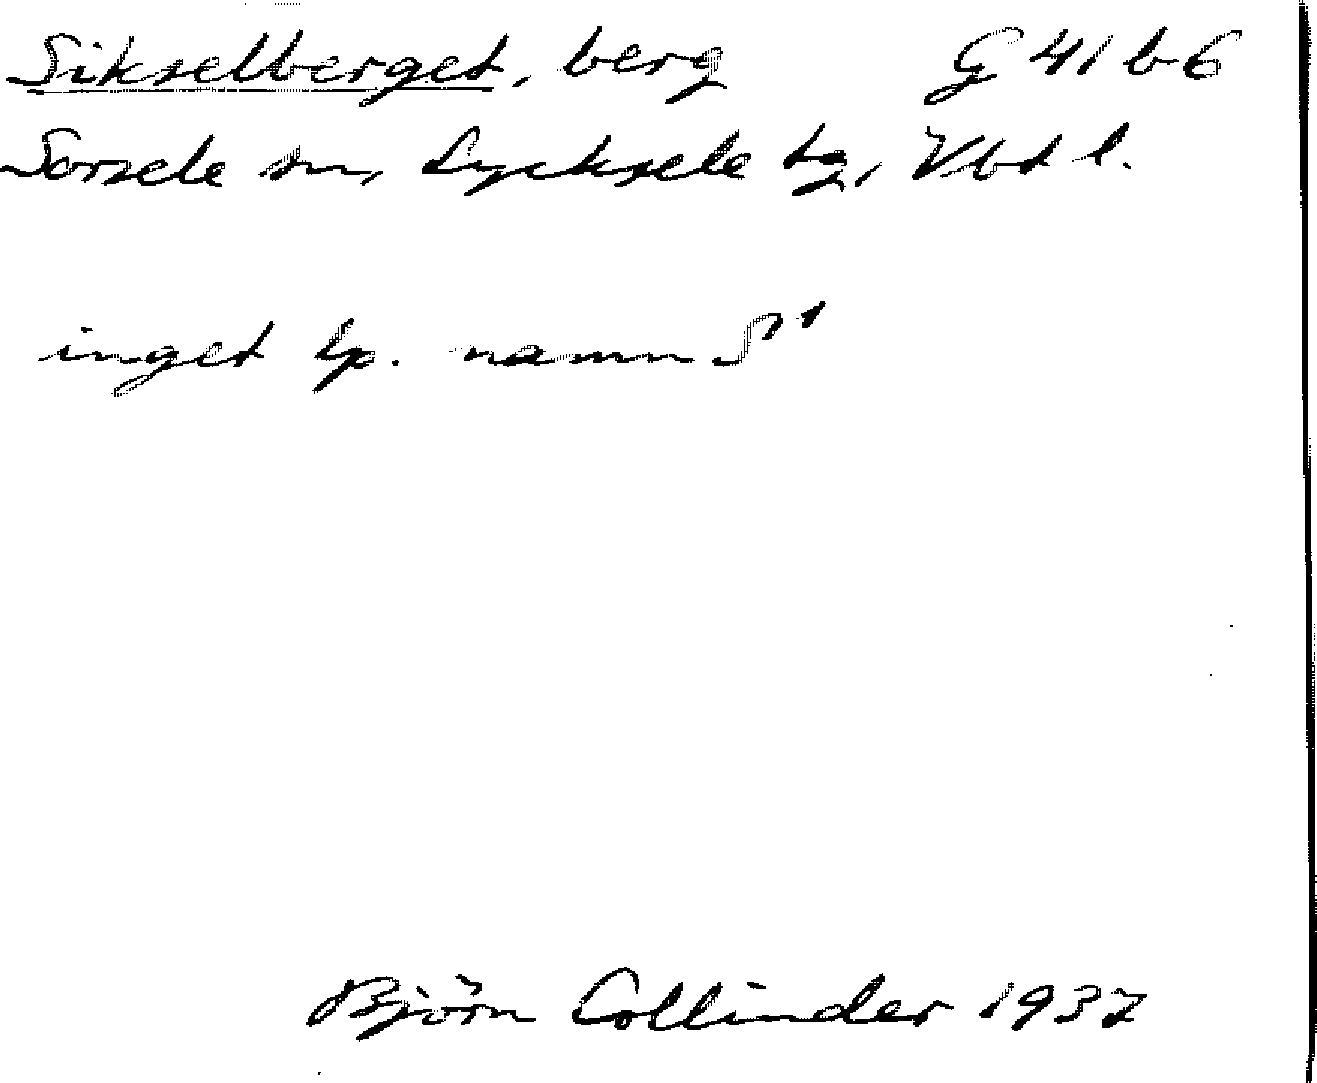 Sikselberget, berg G 41 b 6
Sorsele sn, Lycksele tg, Vbd l.
inget lp. namn
Björn Collinder 1937